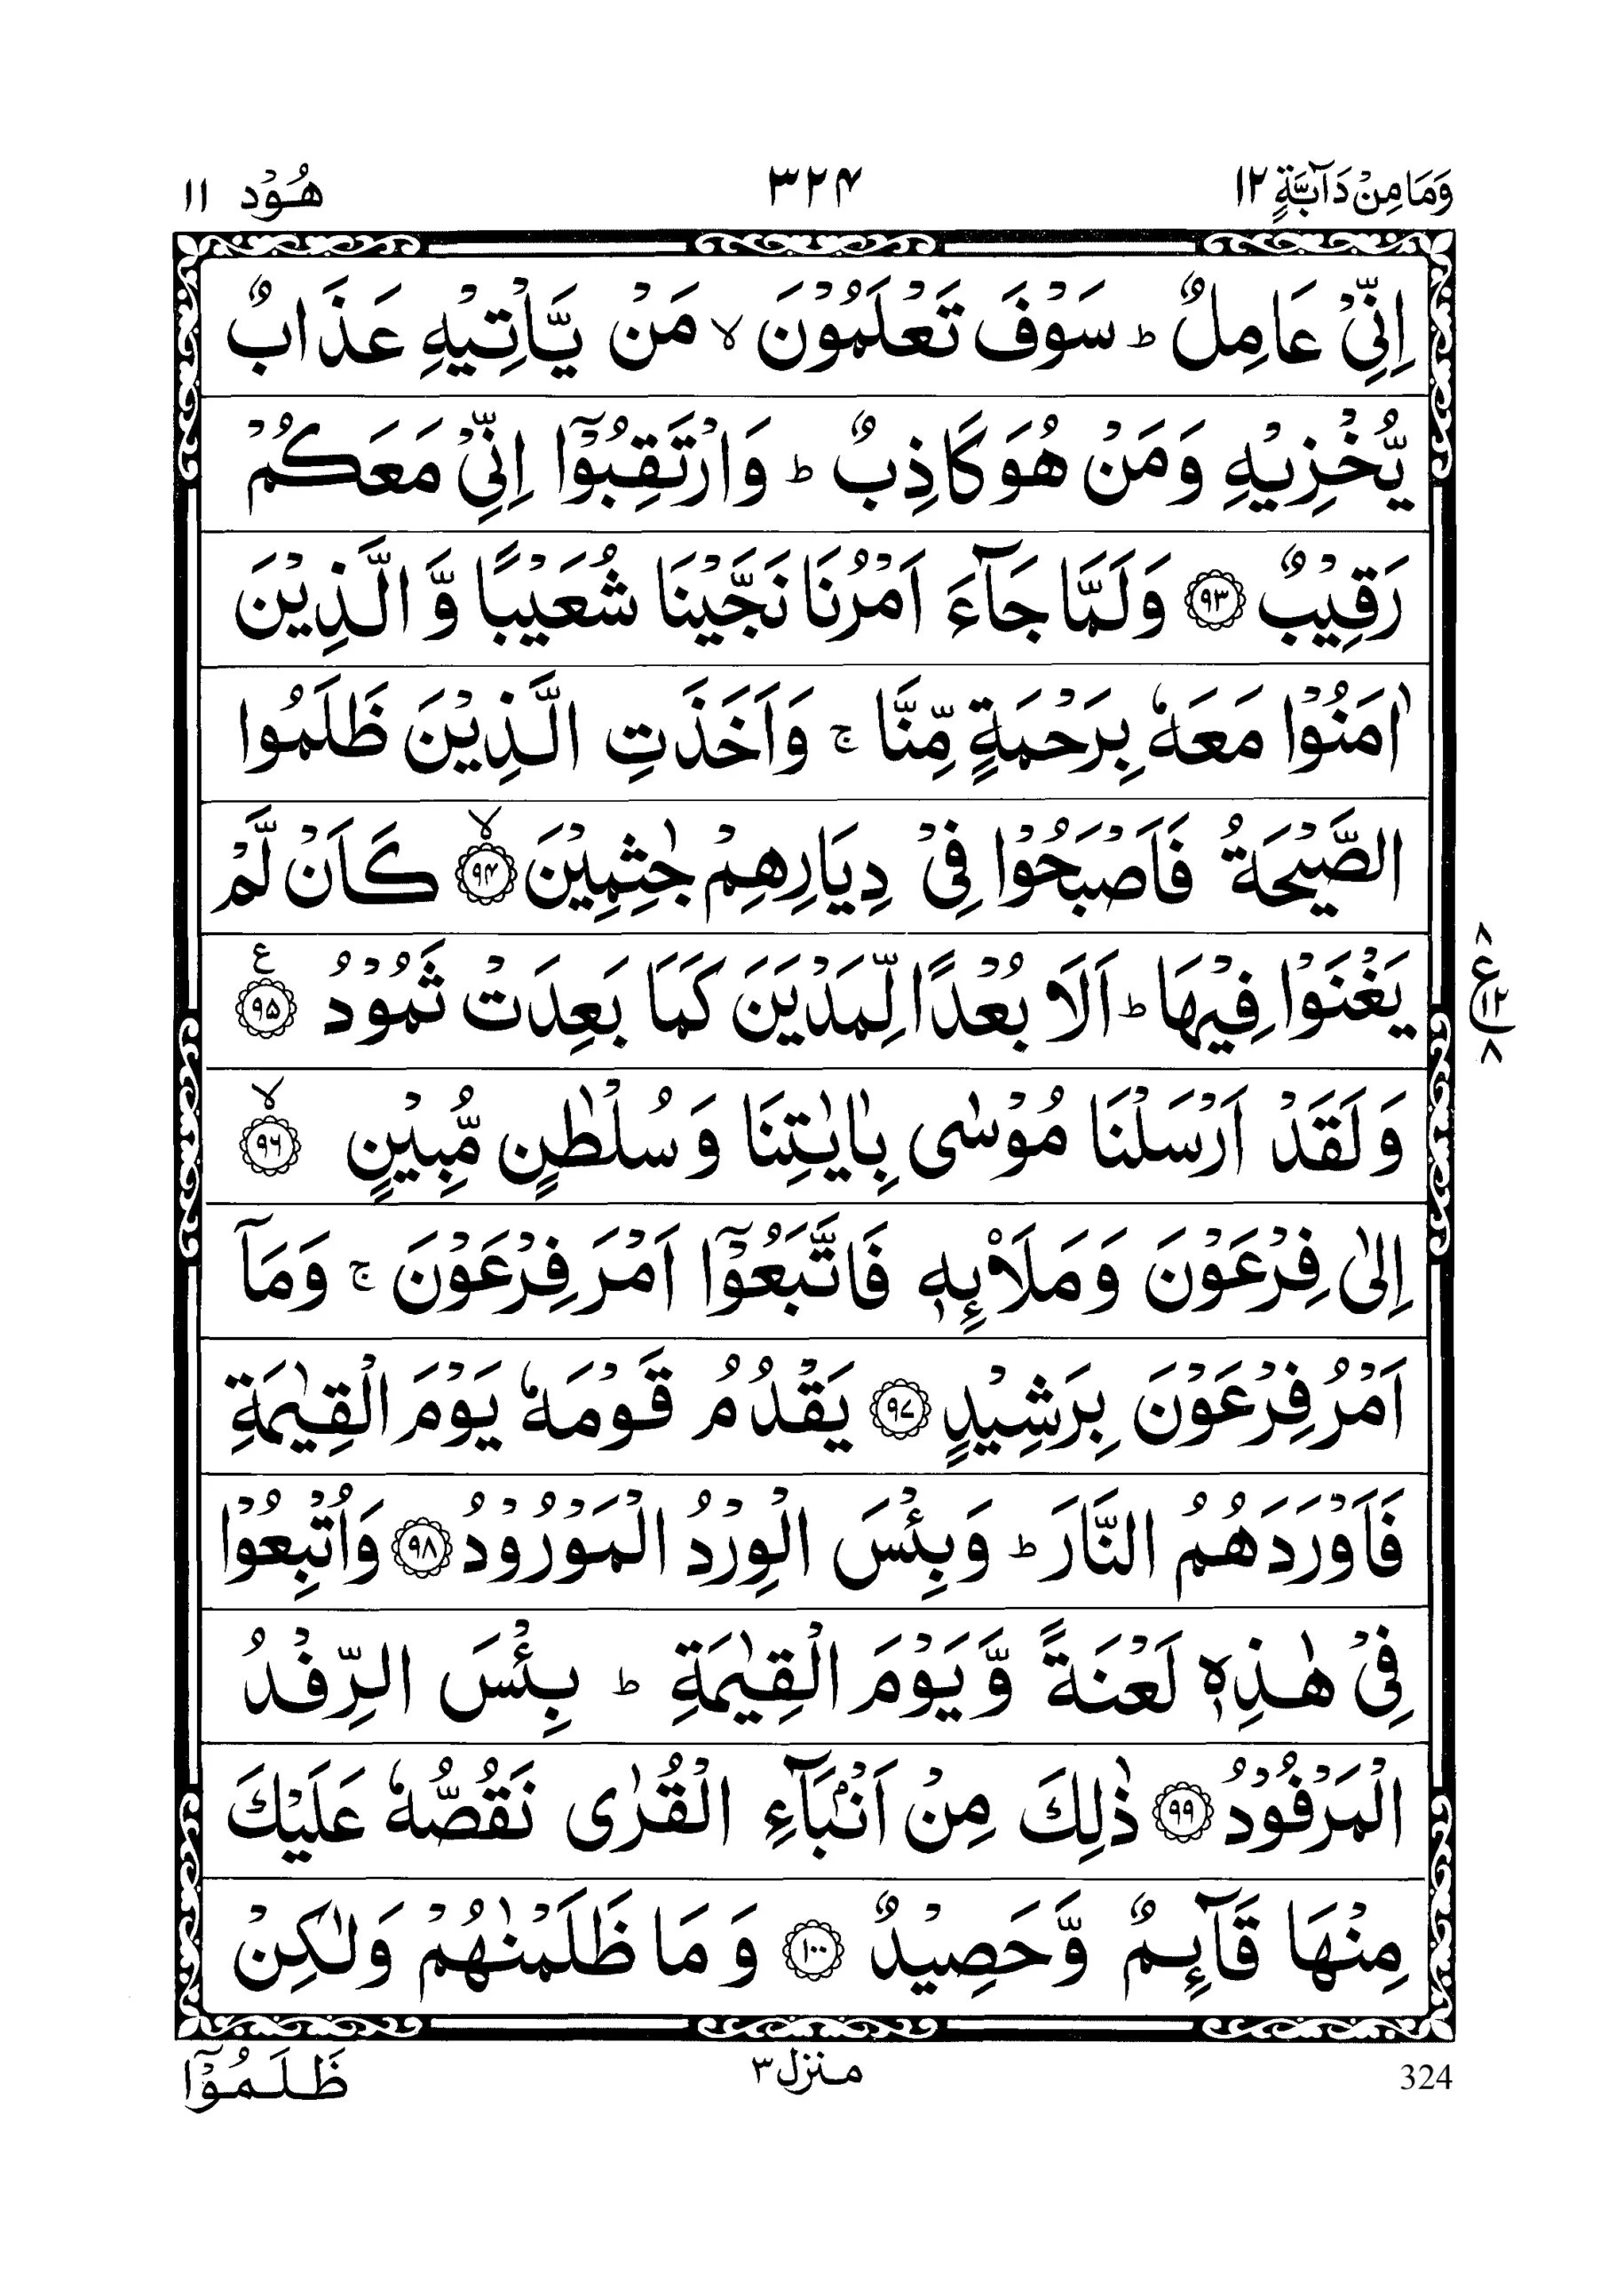 وَمَا مِنْ دَآبَّةٍ ١٢ ٣٢۴ هُوْد ١١
اِنِّیْ عَامِلٌ ؕ سَوْفَ تَعْلَمُوْنَ ۙ مَنْ یَّاْتِیْهِ عَذَابٌ
یُّخْزِیْهِ وَمَنْ هُوَ كَاذِبٌ ؕ وَارْتَقِبُوْۤا اِنِّیْ مَعَكُمْ
رَقِیْبٌ ﴿۹۳﴾ وَلَمَّا جَآءَ اَمْرُنَا نَجَّیْنَا شُعَیْبًا وَّ الَّذِیْنَ
اٰمَنُوْا مَعَهٗ بِرَحْمَةٍ مِّنَّا ۚ وَاَخَذَتِ الَّذِیْنَ ظَلَمُوا
الصَّیْحَةُ فَاَصْبَحُوْا فِیْ دِیَارِهِمْ جٰثِمِیْنَ ﴿۹۴﴾ۙ كَاَنْ لَّمْ
یَغْنَوْا فِیْهَا ؕ اَلَا بُعْدًا لِّمَدْیَنَ كَمَا بَعِدَتْ ثَمُوْدُ ﴿۹۵﴾ ع
۸ ع ۱۲ ۸
وَلَقَدْ اَرْسَلْنَا مُوْسٰی بِاٰیٰتِنَا وَسُلْطٰنٍ مُّبِیْنٍ ﴿۹۶﴾ۙ
اِلٰی فِرْعَوْنَ وَمَلَا۟ىِٕهٖ فَاتَّبَعُوْۤا اَمْرَ فِرْعَوْنَ ۚ وَمَاۤ
اَمْرُ فِرْعَوْنَ بِرَشِیْدٍ ﴿۹۷﴾ یَقْدُمُ قَوْمَهٗ یَوْمَ الْقِیٰمَةِ
فَاَوْرَدَهُمُ النَّارَ ؕ وَبِئْسَ الْوِرْدُ الْمَوْرُوْدُ ﴿۹۸﴾ وَاُتْبِعُوْا
فِیْ هٰذِهٖ لَعْنَةً وَّیَوْمَ الْقِیٰمَةِ ؕ بِئْسَ الرِّفْدُ
الْمَرْفُوْدُ ﴿۹۹﴾ ذٰلِكَ مِنْ اَنْۢبَآءِ الْقُرٰی نَقُصُّهٗ عَلَیْكَ
مِنْهَا قَآىِٕمٌ وَّحَصِیْدٌ ﴿۱۰۰﴾ وَمَا ظَلَمْنٰهُمْ وَلٰكِنْ
324 منزل ٣ ظَلَمُوْۤا